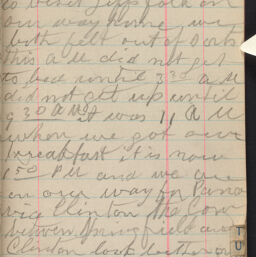 our way home we
both felt out of sorts
this A M did not get
to bed until 3 30 A M
did not get up until
9 30 A M it was 11 A M
when we got our
breakfast it is now
1 50 P M and we are
on our way for Pana
via Clinton the Corn
between Springfield and
Clinton look better
TU